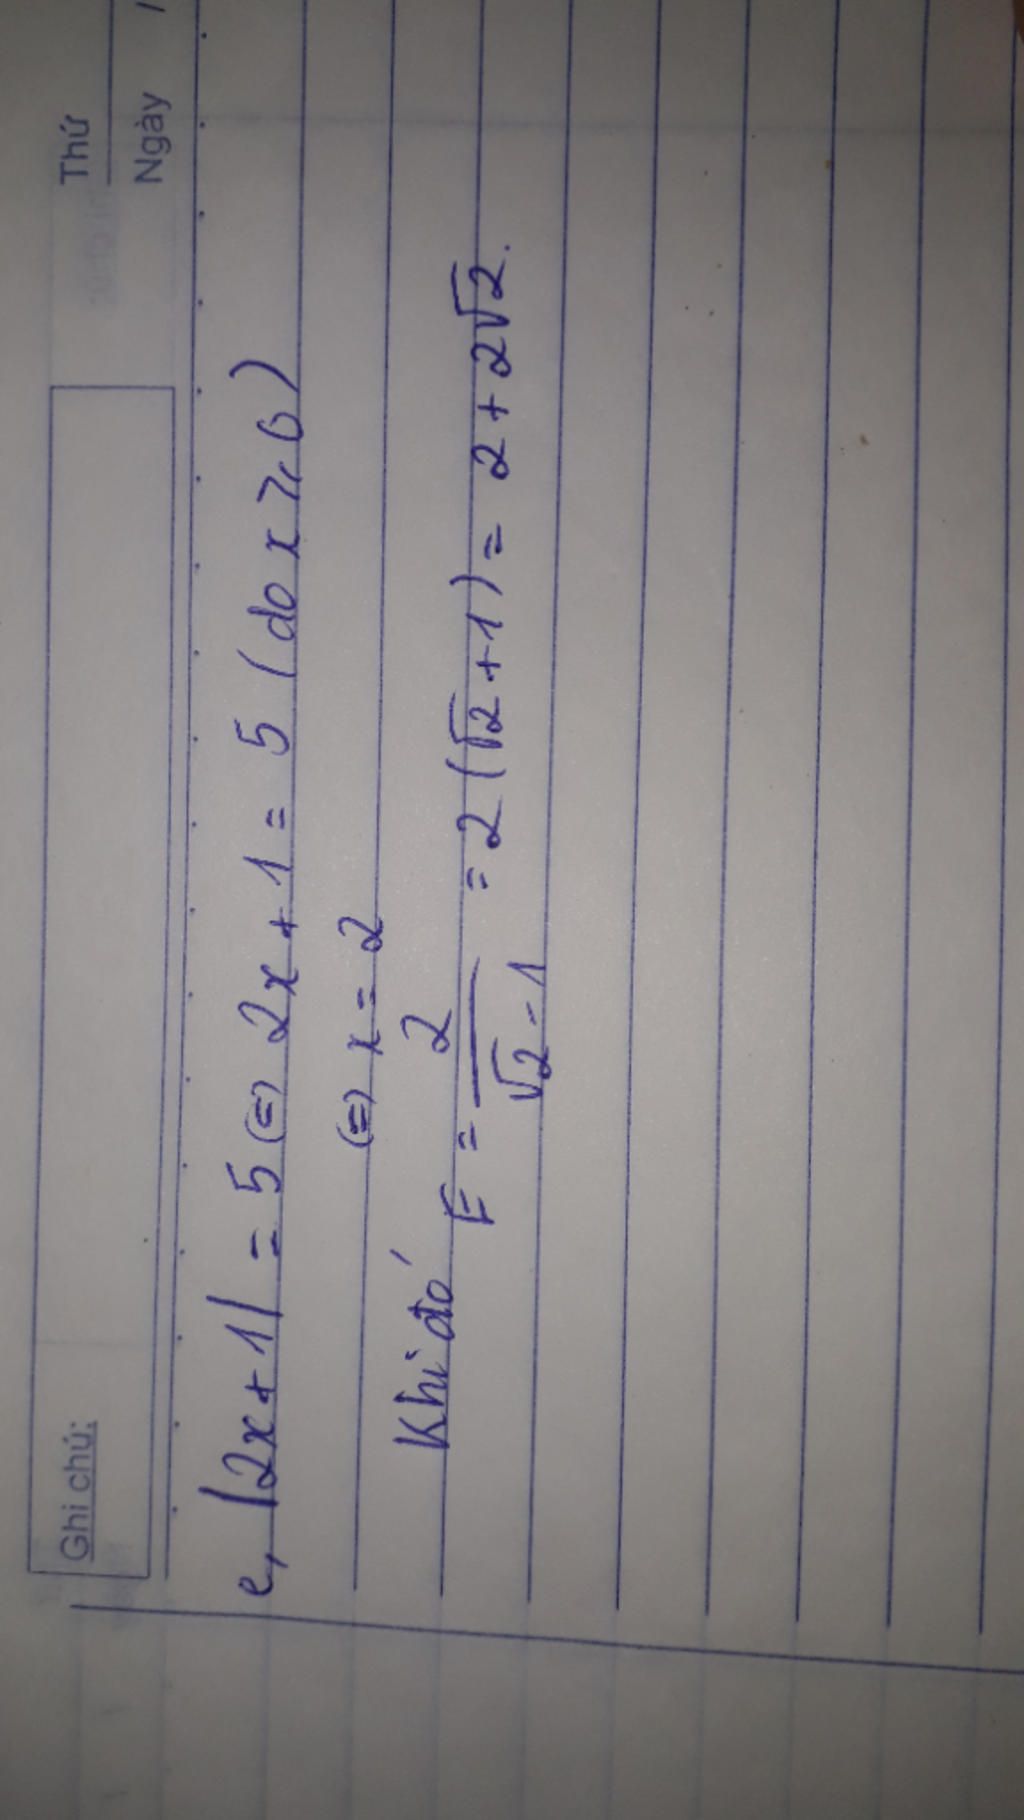 Ghi chú:
Thứ
Ngày /
e, |2x+1| = 5 (=) 2x+1 = 5 (do x ⩾ 0)
(=) x = 2
Khi đó F = 2/(√2-1) = 2(√2+1) = 2+2√2.